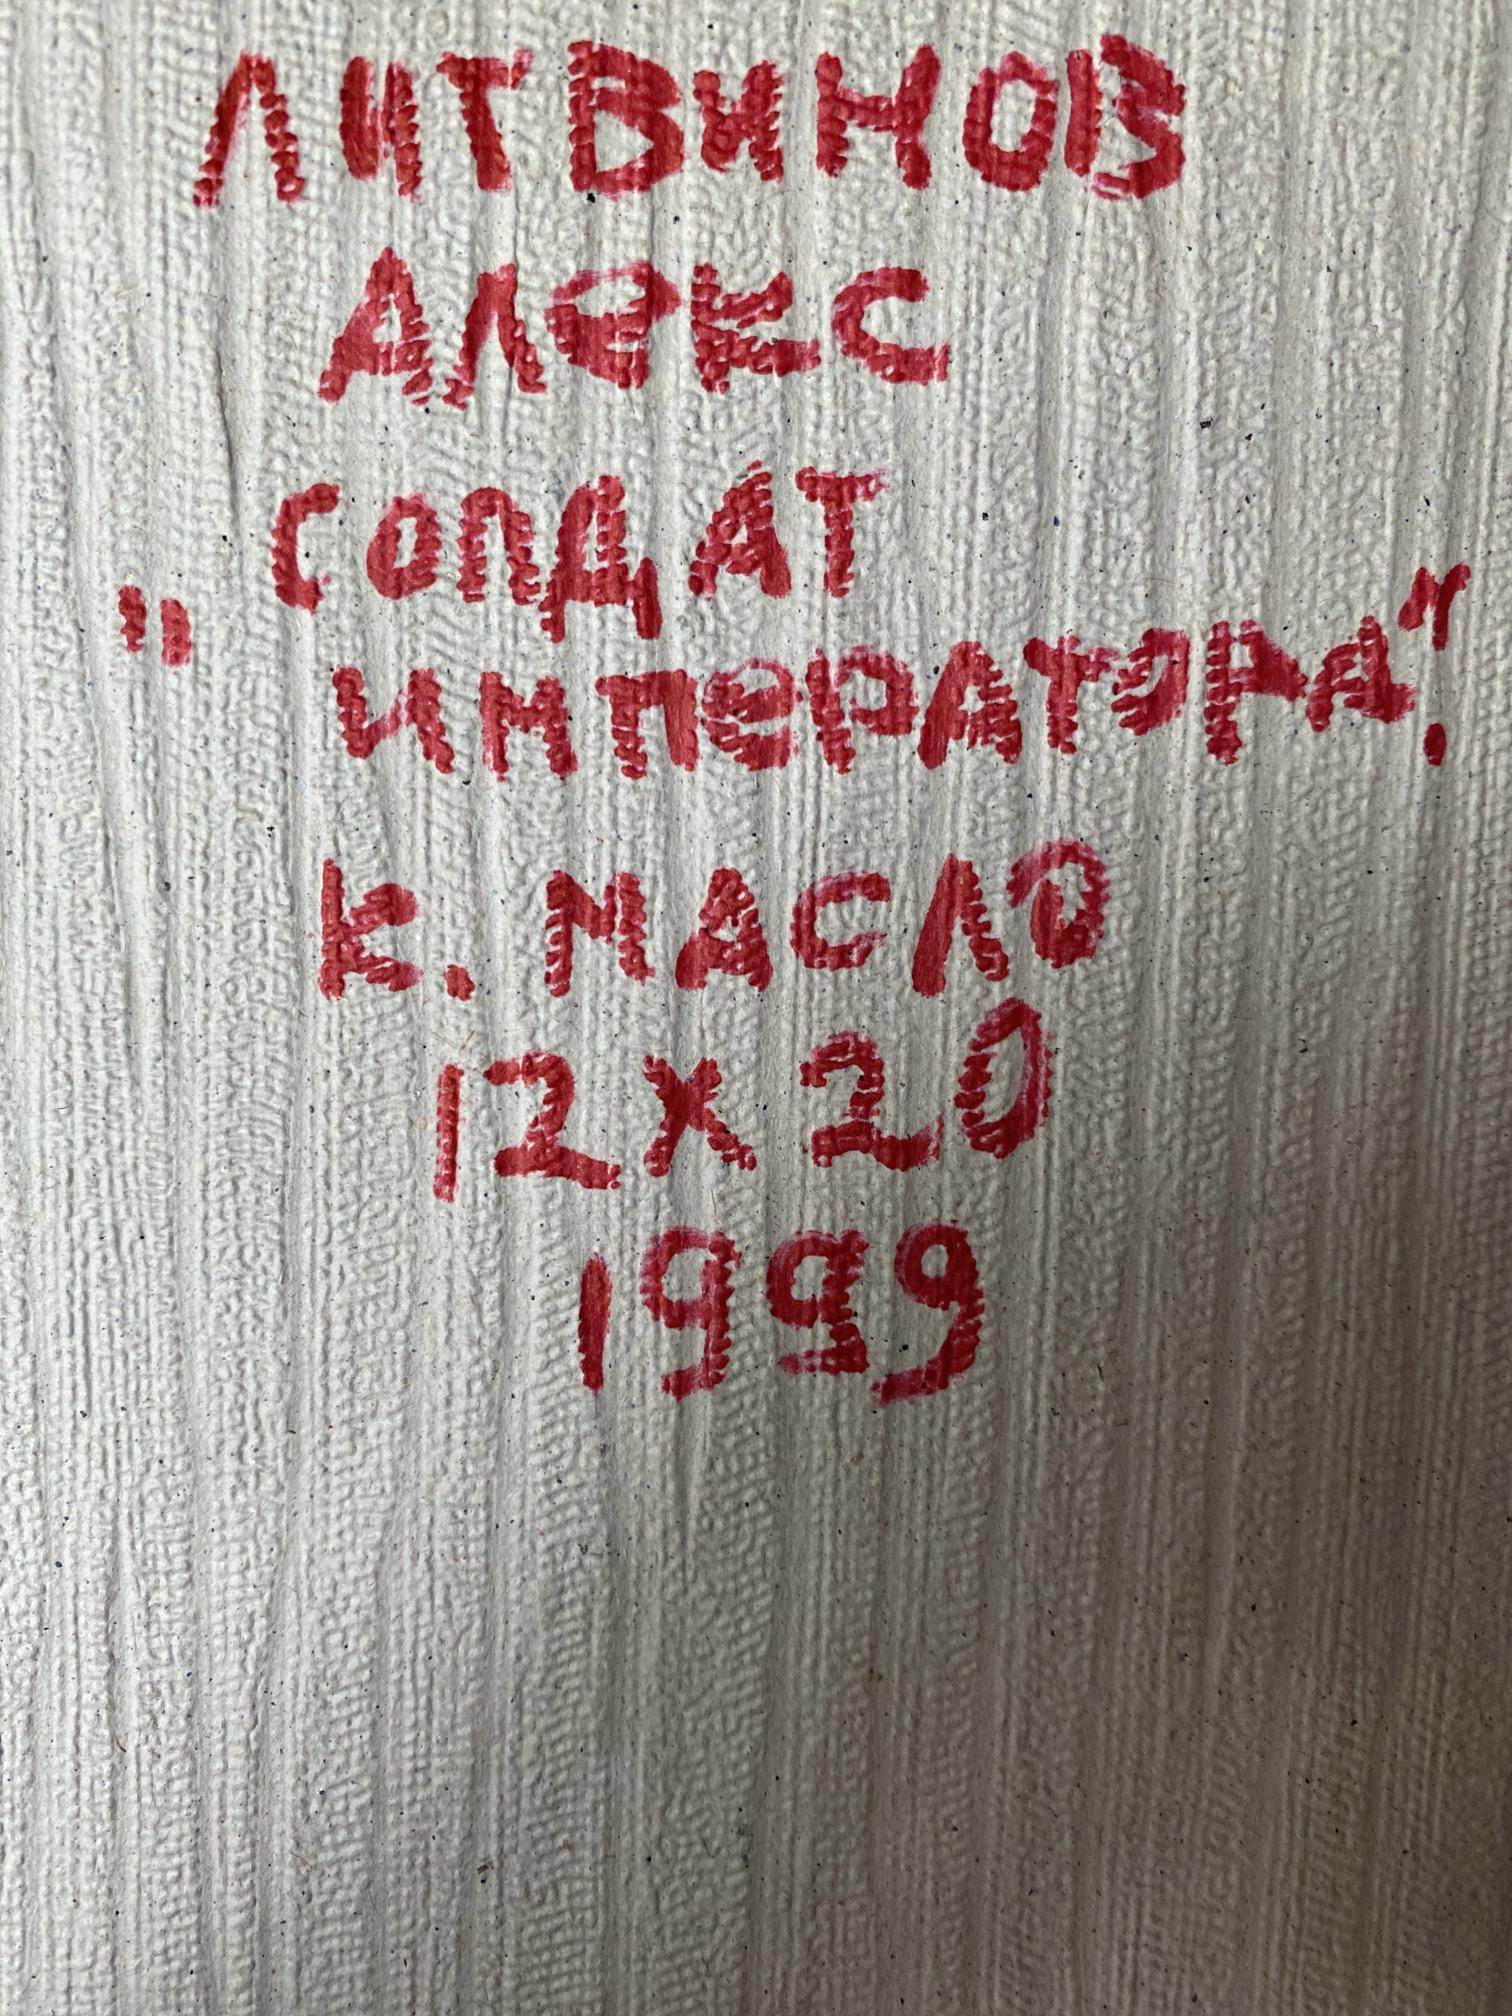 ЛИТВИНОВ
АЛЕКС
СОЛДАТ
"ИМПЕРАТОРА".
К. МАСЛО
12 х 20
1999